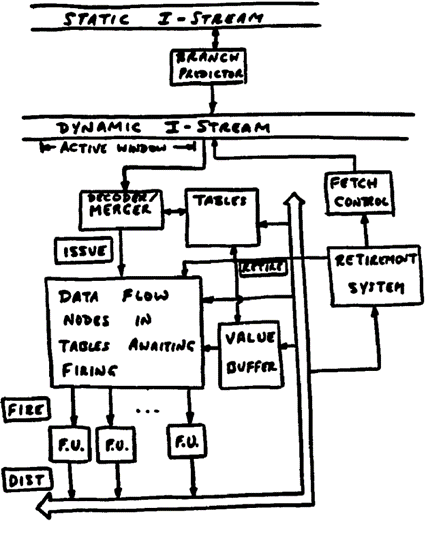 STATIC I-STREAM
BRANCH
PREDICTOR
DYNAMIC I-STREAM
ACTIVE WINDOW
DECODER/
MERGER
TABLES
FETCH
CONTROL
ISSUE
RETIRE
RETIREMENT
SYSTEM
DATA FLOW
NODES IN
TABLES AWAITING
FIRING
VALUE
BUFFER
...
FIRE
F.U.
F.U.
F.U.
DIST